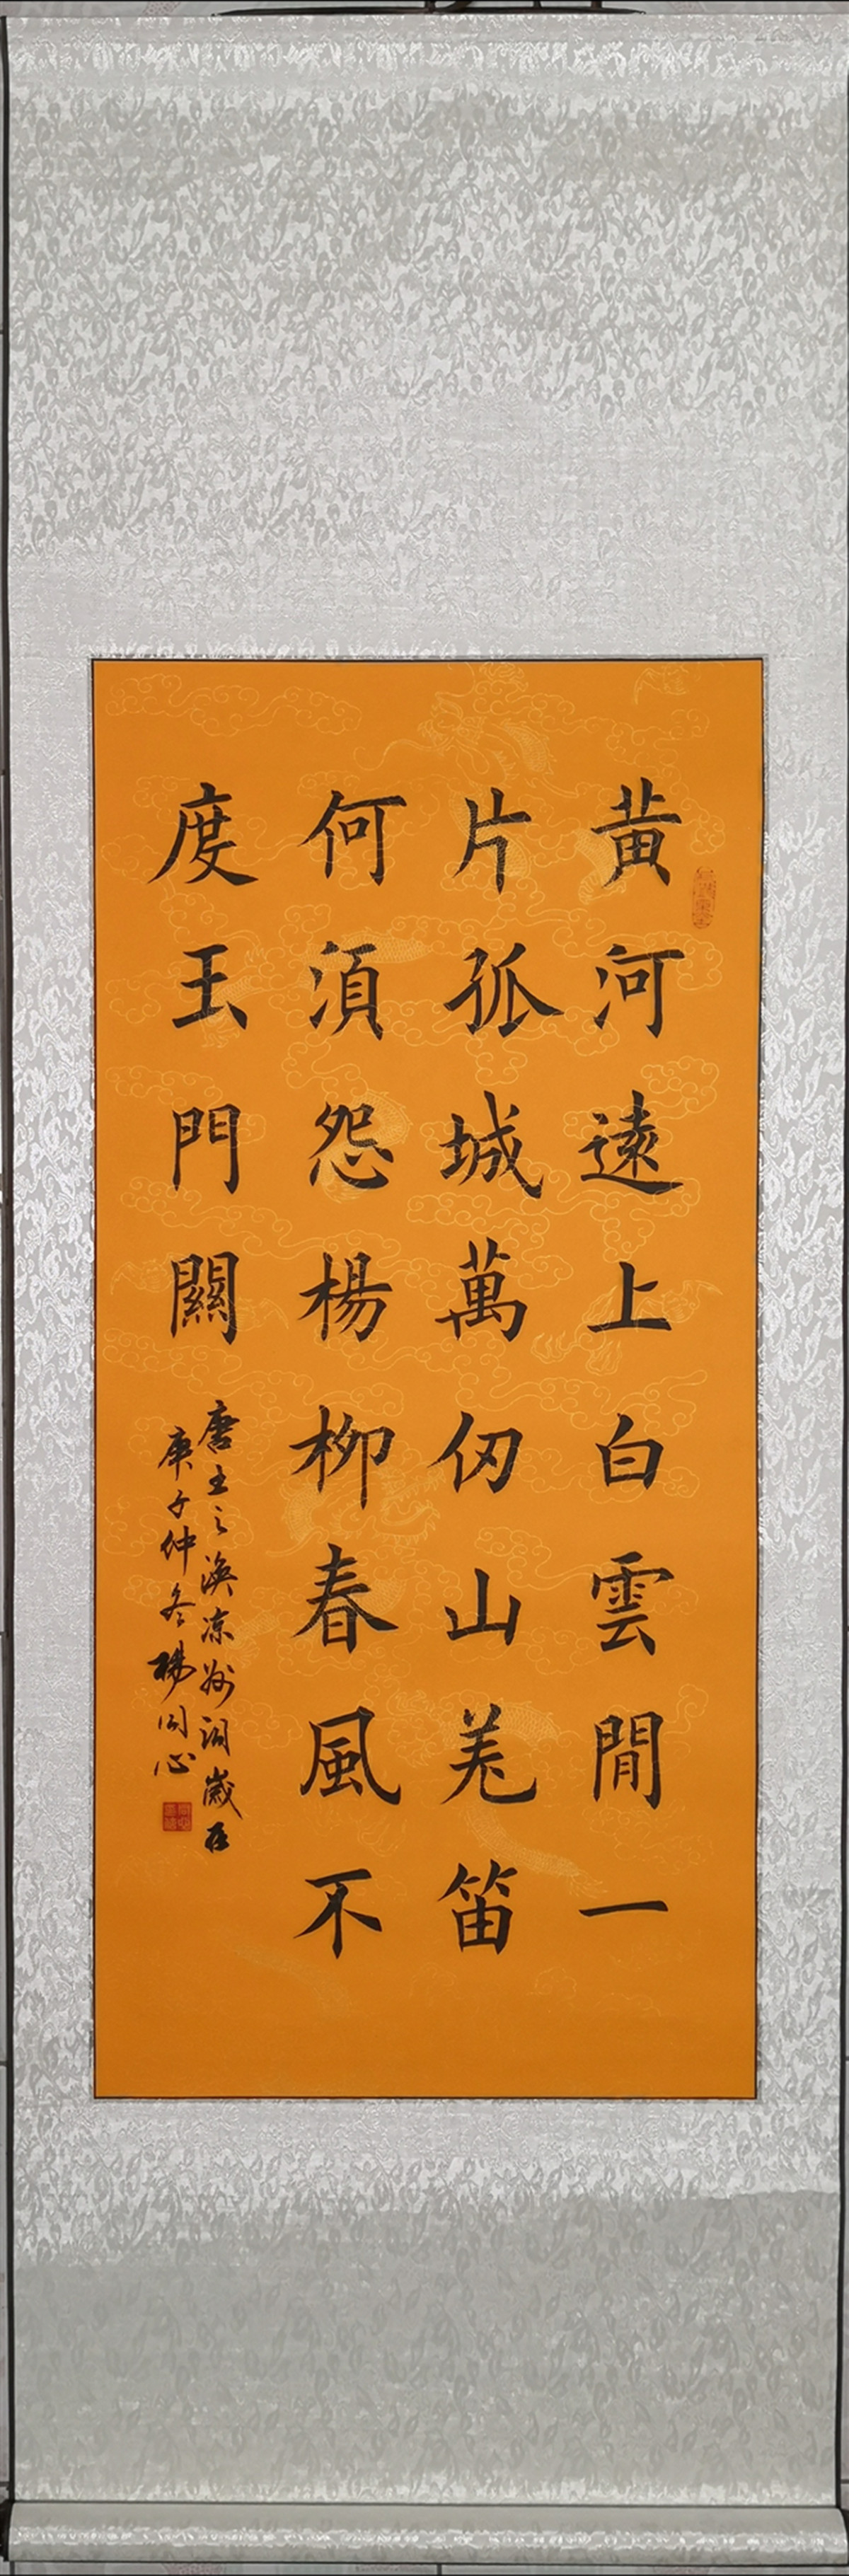 黄河遠上白雲間一
片孤城萬仞山羌笛
何須怨楊柳春風不
度玉門關
唐王之渙凉州詞歲在
庚子仲冬楊同心